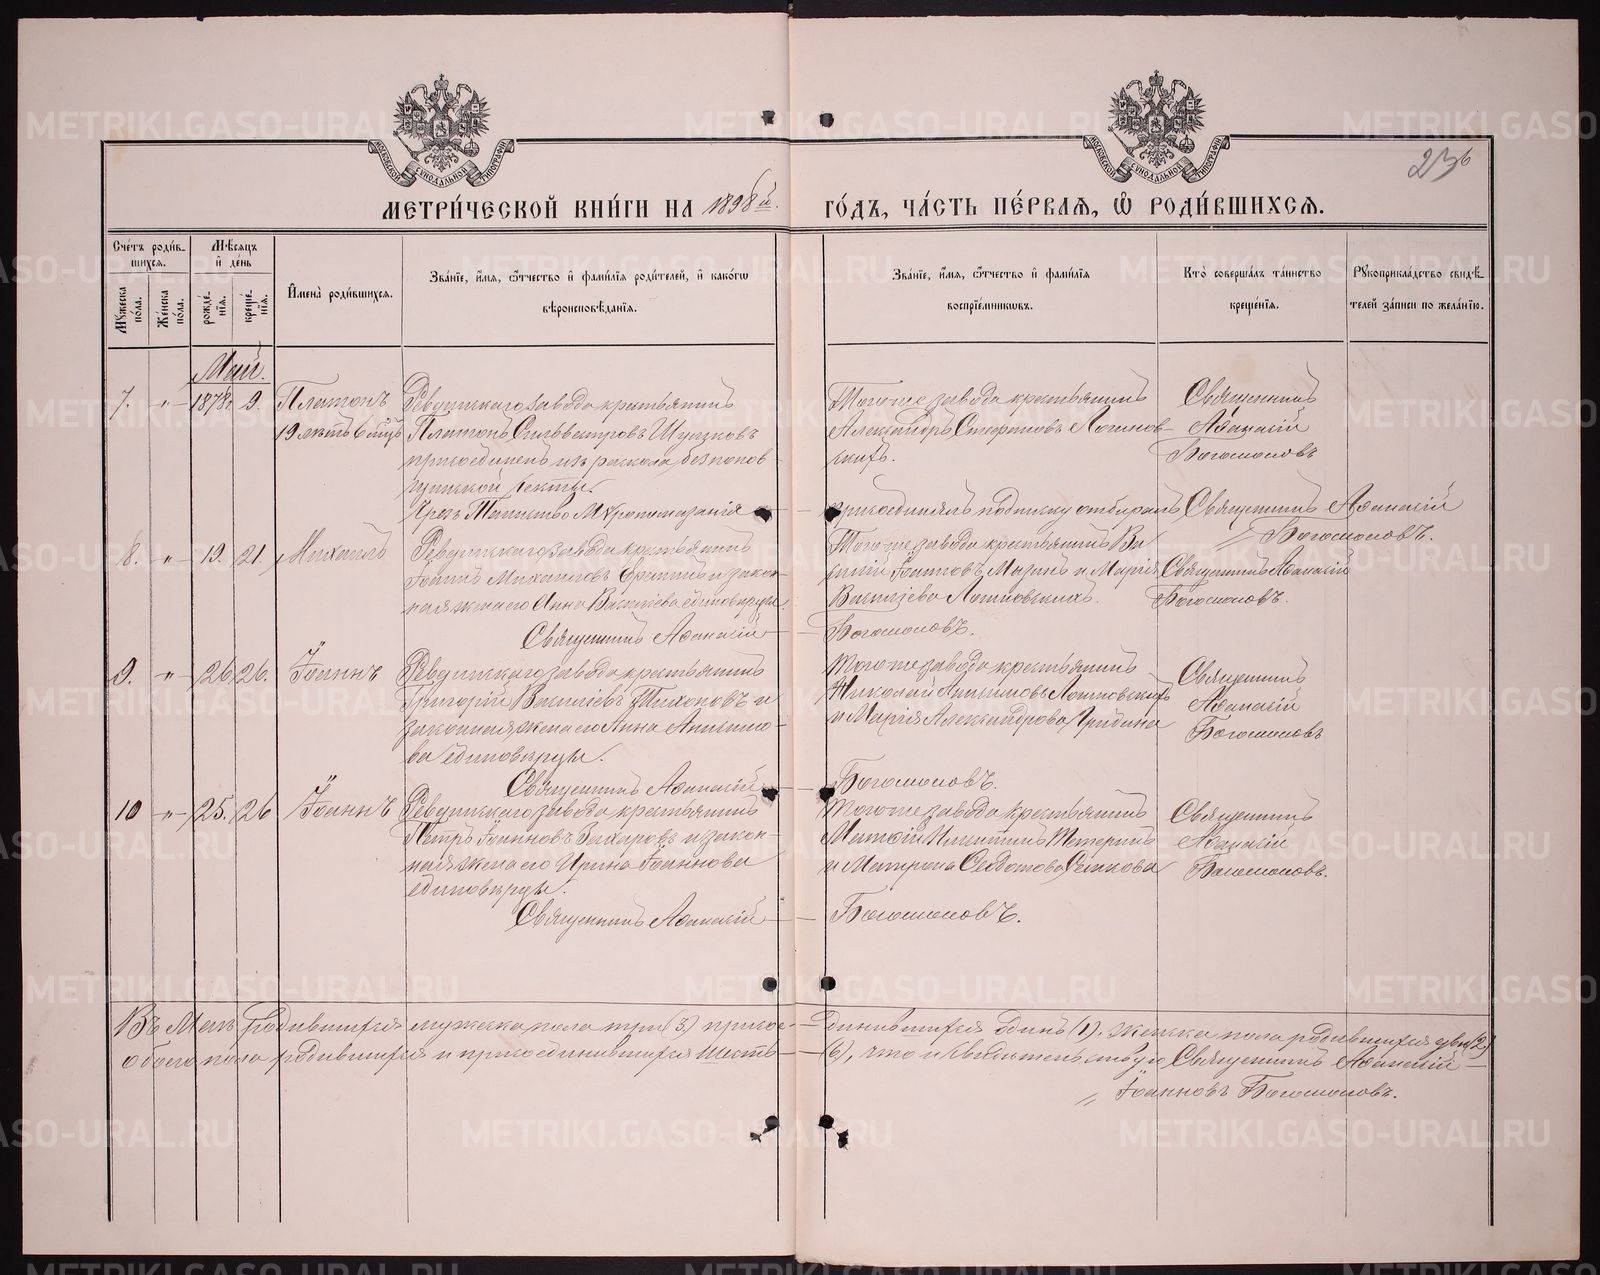 МЕТРИ́ЧЕСКОЙ КНИ́ГИ НА 1898 й. ГО́ДЪ, ЧА́СТЬ ПЕ́РВАЯ, Ѡ РОДИ́ВШИХСЯ.
236
Сче́тъ роди́в-
шихся.
Му́жеска по́ла.
Же́нска по́ла.
Мѣ́сяцъ и де́нь
рожде́нїя.
креще́нїя.
И҆мена̀ роди́вшихся.
Зва́нїе, и҆́мя, ѻ҆́тчество и҆ фами́лїя роди́телей, и҆ како́гѡ
вѣроисповѣ́данїя.
Зва́нїе, и҆́мя, ѻ҆́тчество и҆ фами́лїя
воспрїе́мниковъ.
Кто̀ соверша́лъ та́инство
креще́нїя.
Рꙋкоприкла́дство свидѣ́-
телей за́писи по жела́нїю.
Май.
7. " 1878 г. 9. Платонъ
19 лѣтъ 6 мѣс
Ревдинскаго завода крестьянинъ
Платонъ Сильвестровъ
присоединенъ изъ раскола, безпопов-
щинской секты.
Чрезъ Таинство Мѵропомазанія
Тогоже завода крестьянинъ
Александръ Стефановъ Логинов-
скихъ.
Священникъ
Аѳанасій
Богомоловъ
присоединялъ подписку отбиралъ Священникъ Аѳанасій
Богомоловъ.
8. " 19. 21. Михаилъ
Ревдинскаго завода крестьянинъ
Іоаннъ Михаиловъ и закон-
ная жена его Анна Васильева единовѣрцы
Священникъ Аѳанасій
Тогоже завода крестьянинъ Ва
силій Іоанновъ и Марія
Васильева
Богомоловъ.
Священникъ Аѳанасій
Богомоловъ.
9. " 26 26. Іоаннъ
Ревдинскаго завода крестьянинъ
Григорій Васильевъ Тихоновъ и
законная жена его Анна Анисимо-
ва единовѣрцы.
Священникъ Аѳанасій
Тогоже завода крестьянинъ
Николай Анисимовъ
и Марія Александрова
Богомоловъ.
Священникъ
Аѳанасій
Богомоловъ
10 " 25. 26 Іоаннъ
Ревдинскаго завода крестьянинъ
Петръ Іоанновъ Захаровъ и закон-
ная жена его Ирина Іоаннова
единовѣрцы.
Священникъ Аѳанасій
Тогоже завода крестьянинъ
Матѳій Никитинъ
и Матрона Ѳедотова
Богомоловъ.
Священникъ
Аѳанасій
Богомоловъ.
Въ Маѣ родившихся мужеска пола три (3) присое- динившихся одинъ (1). женска пола родившихся двѣ (2)
обоего пола родившихся и присоединившихся шесть (6), что и свидѣтельствую Священникъ Аѳанасій
Іоанновъ Богомоловъ.
METRIKI.GASO-URAL.RU